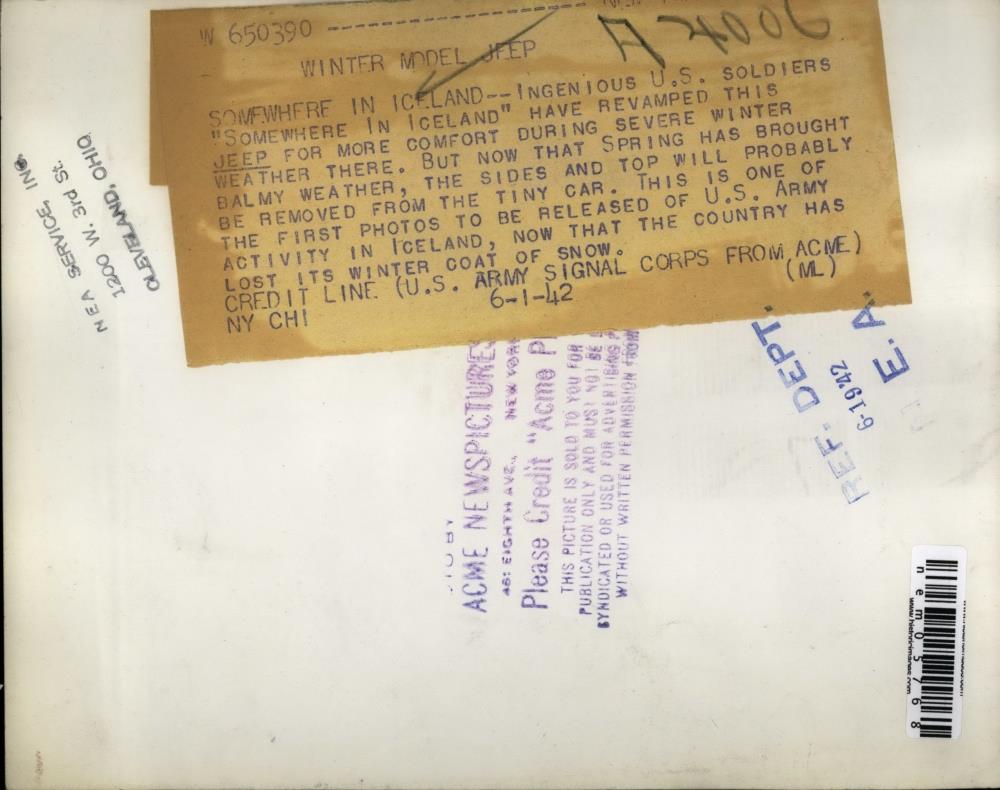 W 650390
A 24006
WINTER MODEL JEEP
SOMEWHERE IN ICELAND--INGENIOUS U.S. SOLDIERS
"SOMEWHERE IN ICELAND" HAVE REVAMPED THIS
JEEP FOR MORE COMFORT DURING SEVERE WINTER
WEATHER THERE. BUT NOW THAT SPRING HAS BROUGHT
BALMY WEATHER, THE SIDES AND TOP WILL PROBABLY
BE REMOVED FROM THE TINY CAR. THIS IS ONE OF
THE FIRST PHOTOS TO BE RELEASED OF U.S. ARMY
ACTIVITY IN ICELAND, NOW THAT THE COUNTRY HAS
LOST ITS WINTER COAT OF SNOW.
CREDIT LINE (U.S. ARMY SIGNAL CORPS FROM ACME)
NY CHI 6-1-42 (ML)
NEA SERVICE, INC.
1200 W. 3rd St.
CLEVELAND, OHIO
ACME NEWSPICTURES
461 EIGHTH AVE., NEW YORK
Please Credit "Acme P
THIS PICTURE IS SOLD TO YOU FOR
PUBLICATION ONLY AND MUST NOT BE
SYNDICATED OR USED FOR ADVERTISING
WITHOUT WRITTEN PERMISSION FROM
REF. DEPT.
6-1942
E. A.
nem05768
www.historicimages.com